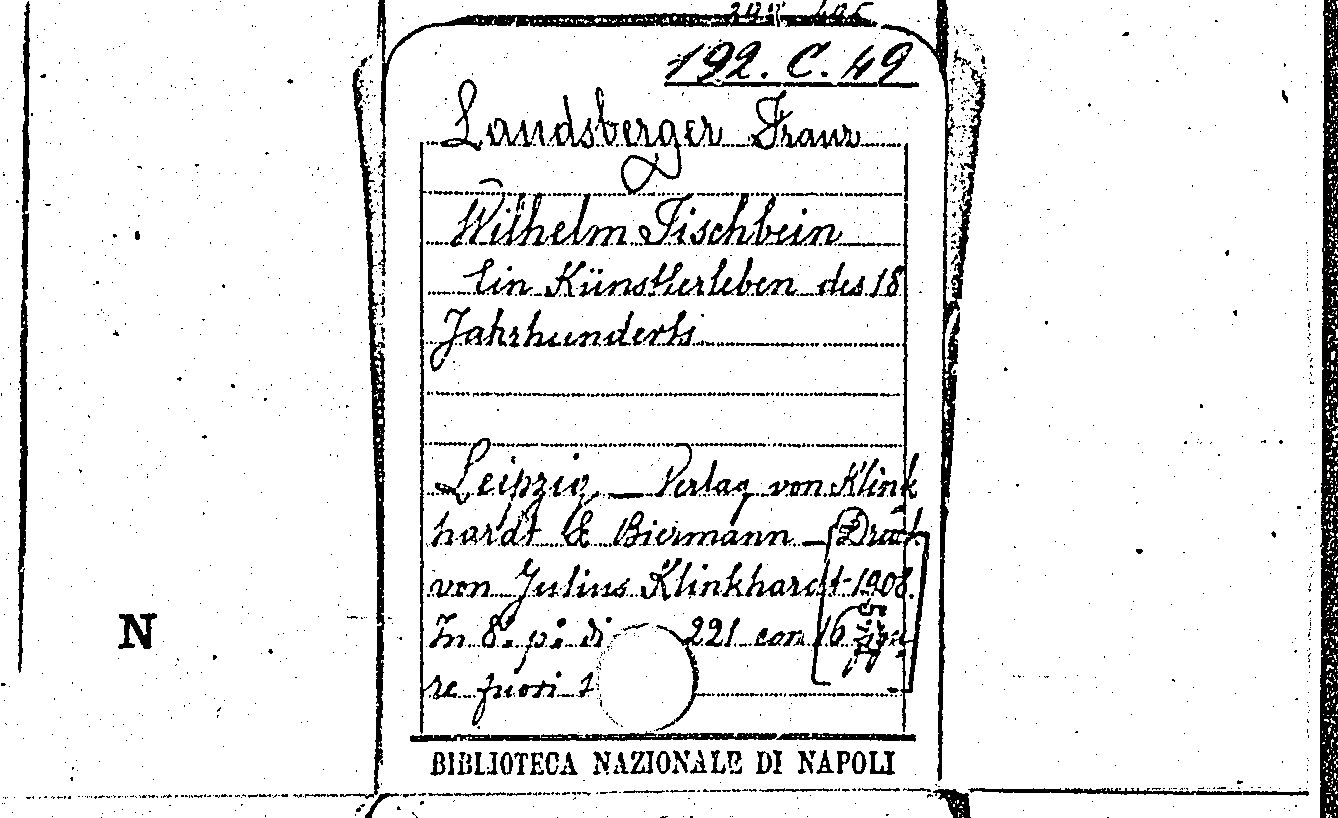 192. C. 49
Landsberger Franz
Wilhelm Tischbein
Ein Künstlerleben des 18
Jahrhunderts
Leipzig – Verlag von Klink
hardt & Biermann – Druck
von Julius Klinkhardt – 1908.
In 8.° p. di 221 con 16 figu
re fuori t
BIBLIOTECA NAZIONALE DI NAPOLI
N